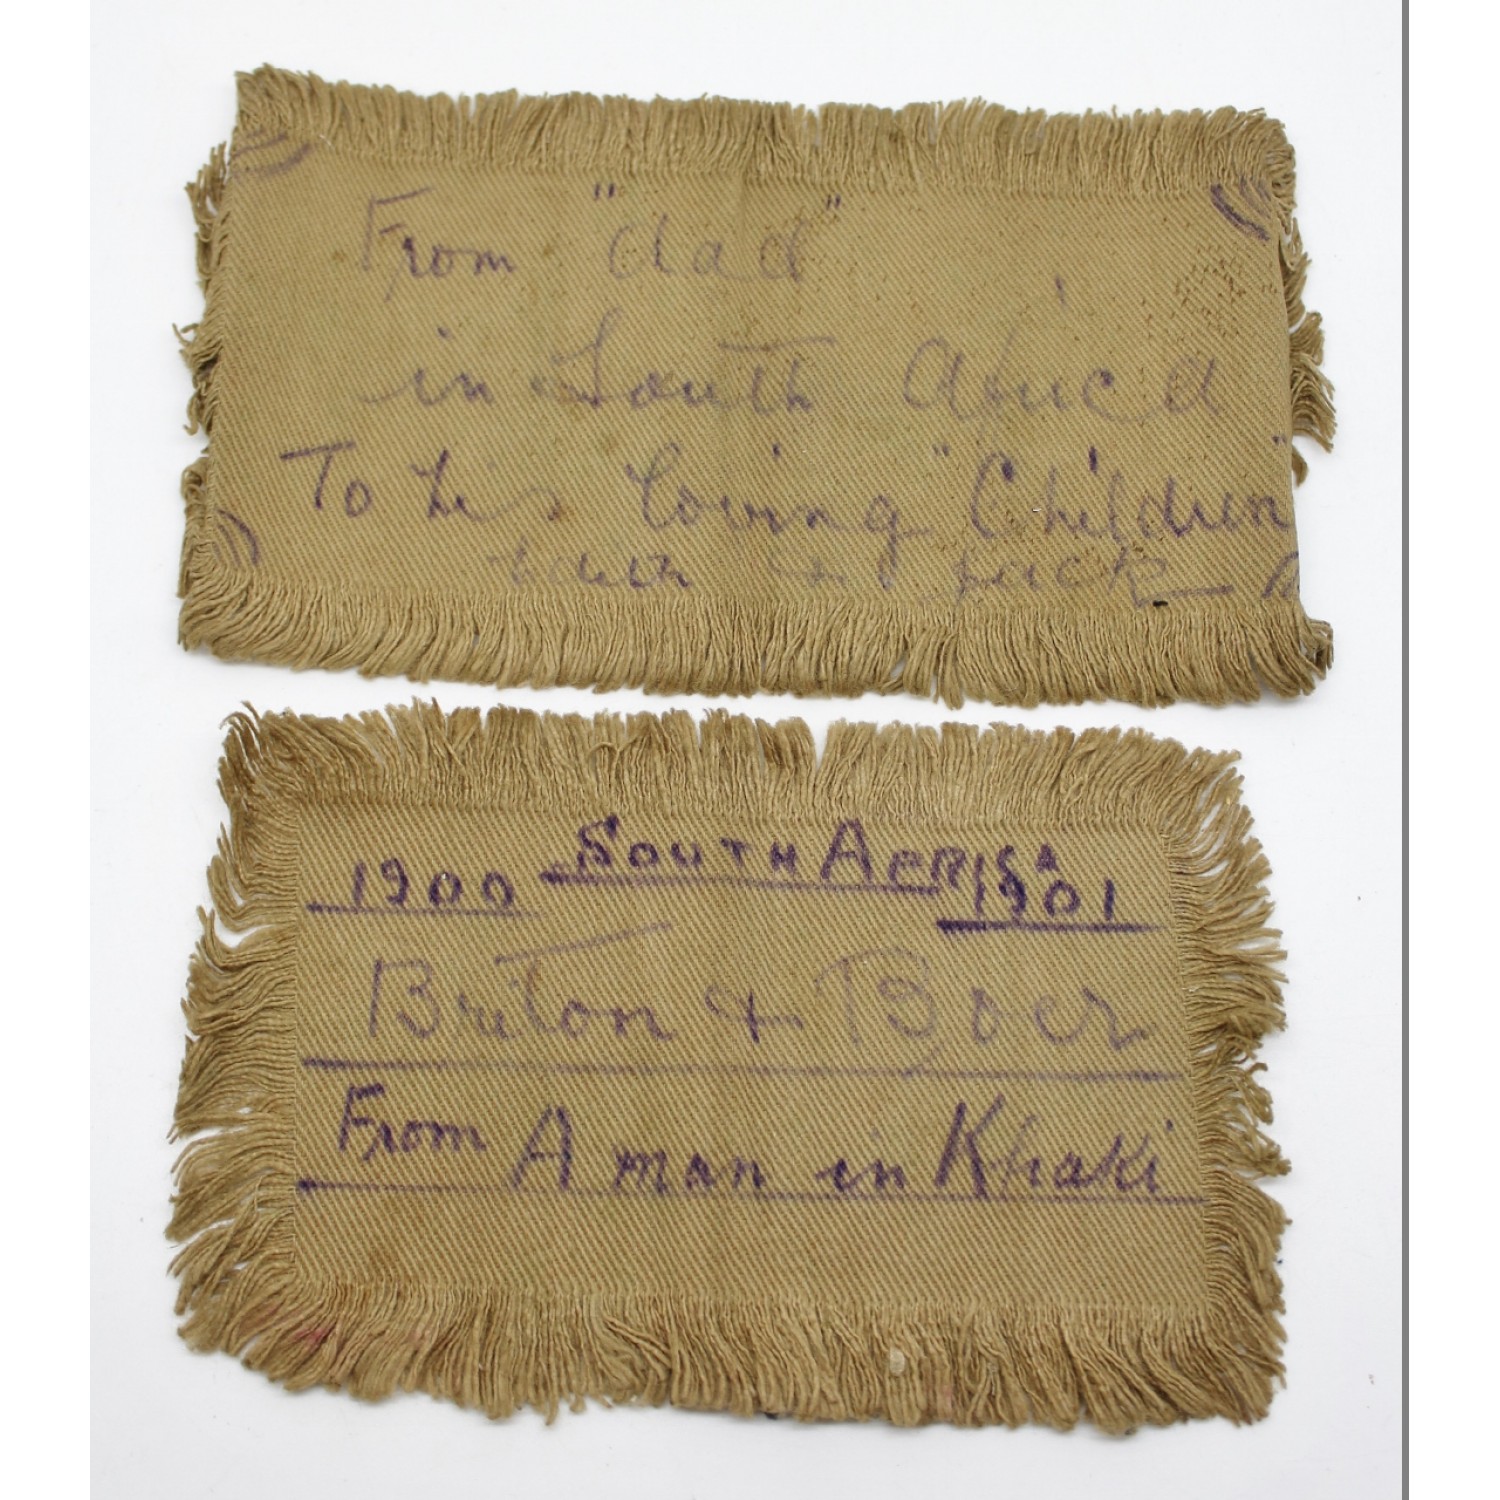 From "dad"
in South Africa
To his loving "Children"
& Jack
South Africa
1900 1901
Briton & Boer
From A man in Khaki